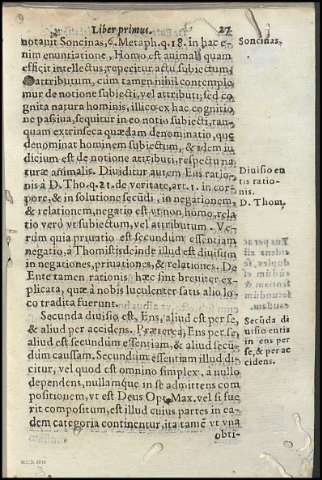 Liber primus. 27
notauit Soncinas, 6. Metaph. q. 18. in hac e-
nim enuntiatione, Homo est animal quam
efficit intellectus, repecitur actu subiectum,
& attributum, cum tamen nihil contemplo-
mur de notione subiecti, vel attributi, sed co-
gnita natura hominis, illico ex hac cognitio-
ne passiua, sequitur in eo notio subiecti, tan-
quam extrinseca quædam denominatio, quę
denominat hominem subiectum, & idem iu-
dicium est de notione attributi, respectu na-
turæ animalis. Diuiditur autem Ens ratio-
nis à D. Tho. q. 21. de veritate, art. 1. in cor-
pore, & in solutione secūdi, in negationem,
& relationem, negatio est vt non homo, rela-
tio verò vt subiectum, vel attributum. Ve-
rum quia priuatio est secundum essentiam
negatio, a Thomistis deinde illud est diuisum
in negationes, priuationes, & relationes. De
Ente tamen rationis hæc sint breuiter ex-
plicata, quæ à nobis luculenter satis alio lo-
co tradita fuerunt.
Secunda diuisio est, Ens, aliud est per se,
& aliud per accidens. Præterea, Ens per se,
aliud est secundum essentiam, & aliud secũ-
dum caussam. Secundum essentiam illud di-
citur, vel quod est omnino simplex, à nullo
dependens, nullamque in se admittens com
positionem, vt est Deus Opt. Max. vel si fue
rit compositum, est illud cuius partes in ea-
dem categoria continentur, ita tamē vt vna
obti-
Soncinas.
Diuisio en
tis ratio-
nis.
D. Thom.
Secūda di
uisio entis
in ens per
se, & per ac
cidens.